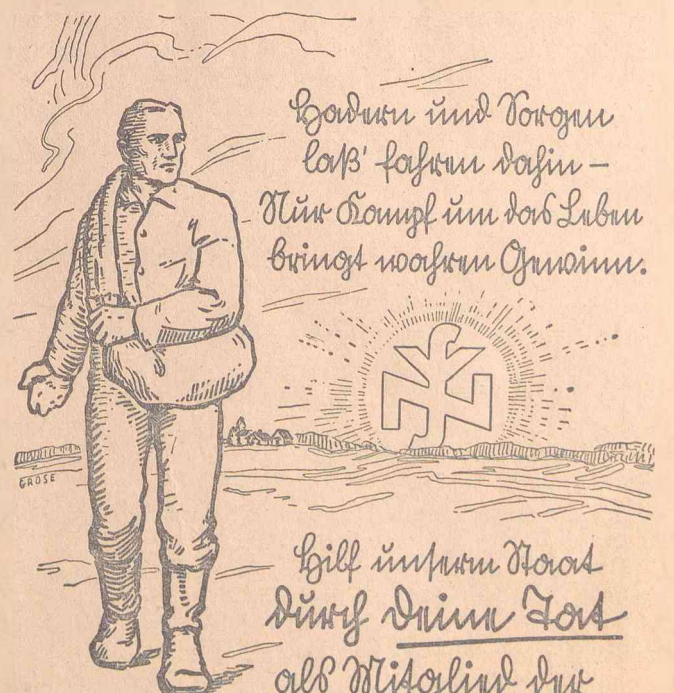 Hadern und Sorgen
laß' fahren dahin –
Nur Kampf um das Leben
bringt wahren Gewinn.
GROSE
Hilf unserm Staat
durch deine Tat
als Mitglied der